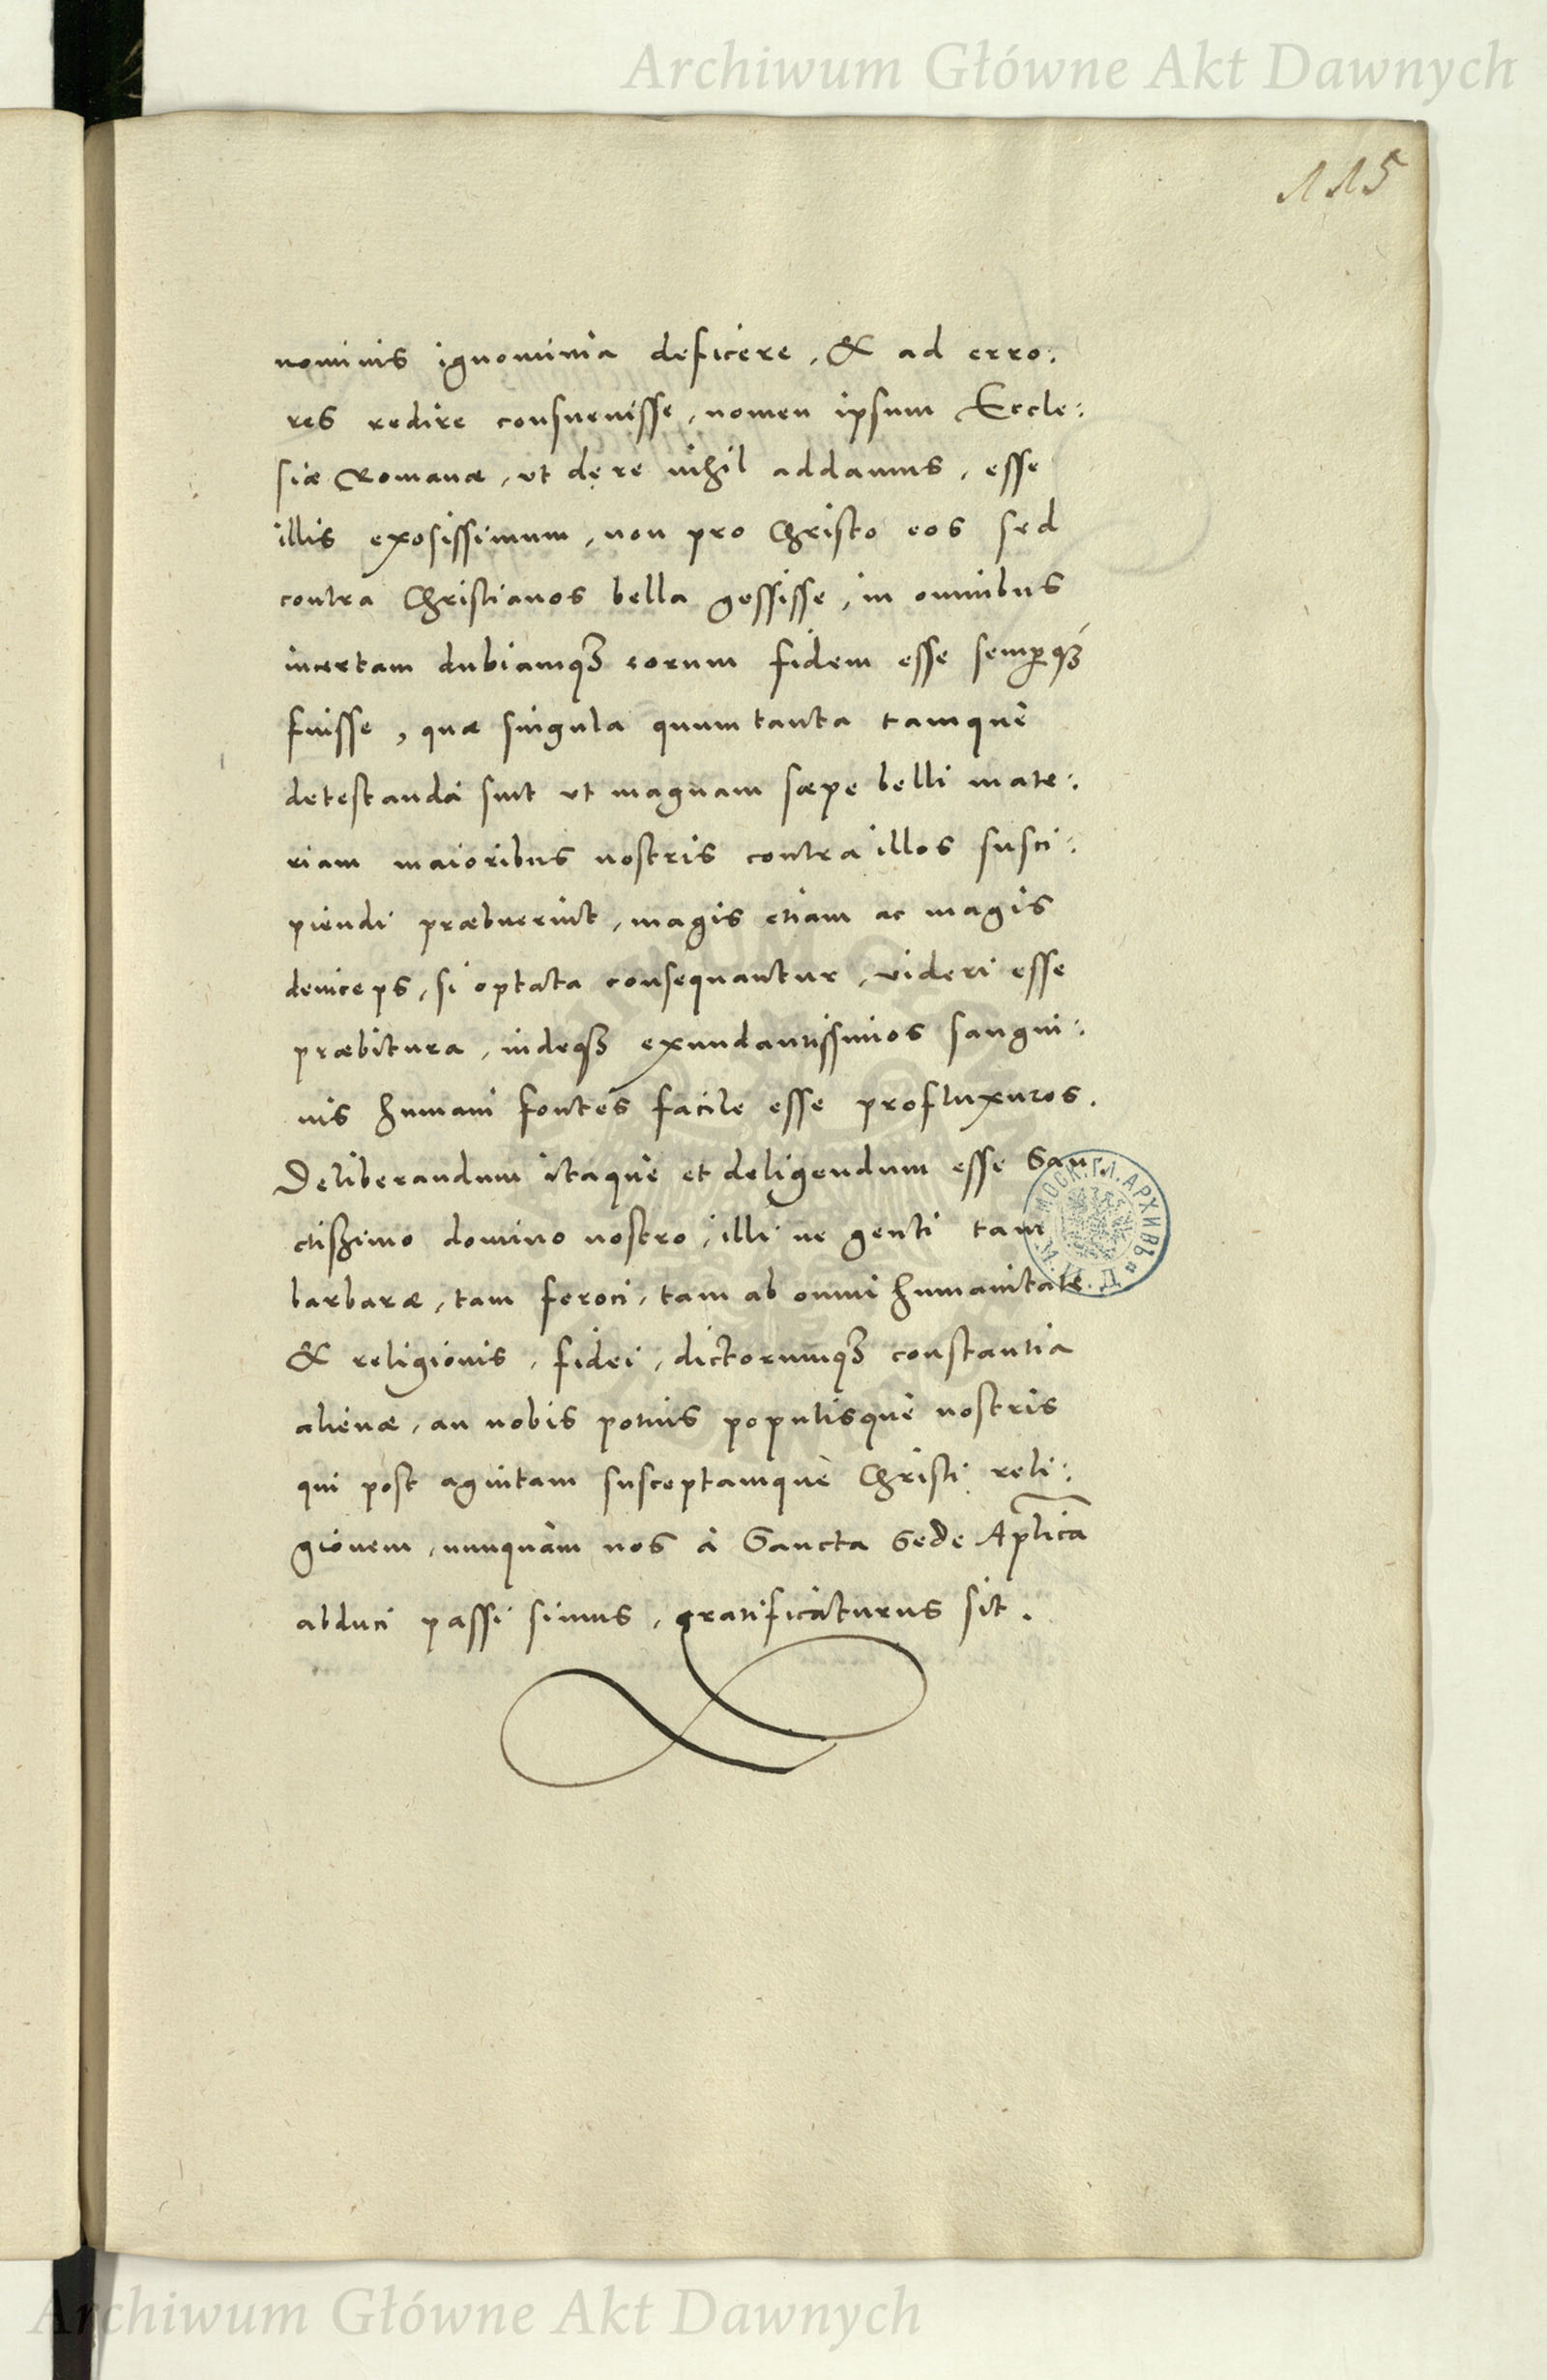 Archiwum Główne Akt Dawnych
115
nominis ignominia deficere, & ad erro:
res redire consuevisse, nomen ipsum Eccle:
siæ Romanæ, ut de re nihil addamus, esse
illis exosissimum, non pro Christo eos sed
contra Christianos bella gessisse, in omnibus
incertam dubiamqꝫ eorum fidem esse semꝑqꝫ
fuisse, quæ singula quum tanta tamque
detestanda sint ut magnam sæpe belli mate:
riam maioribus nostris contra illos susci:
piendi præbuerint, magis etiam ac magis
deinceps, si optata consequantur, videri esse
præbitura, indeqꝫ exundantissimos sangui:
nis humani fontes facile esse profluxuros.
Deliberandum itaque et deligendum esse San:
ctissimo domino nostro, illi ne genti tam
barbaræ, tam feroci, tam ab omni humanitate
& religionis, fidei, dictorumqꝫ constantia
alienæ, an nobis potius populisque nostris
qui post agnitam susceptamque Christi reli:
gionem, nunquam nos à Sancta Sede Aplica
abduci passi simus, gratificaturus sit.
МОСК. ГЛ. АРХИВЪ
Archiwum Główne Akt Dawnych